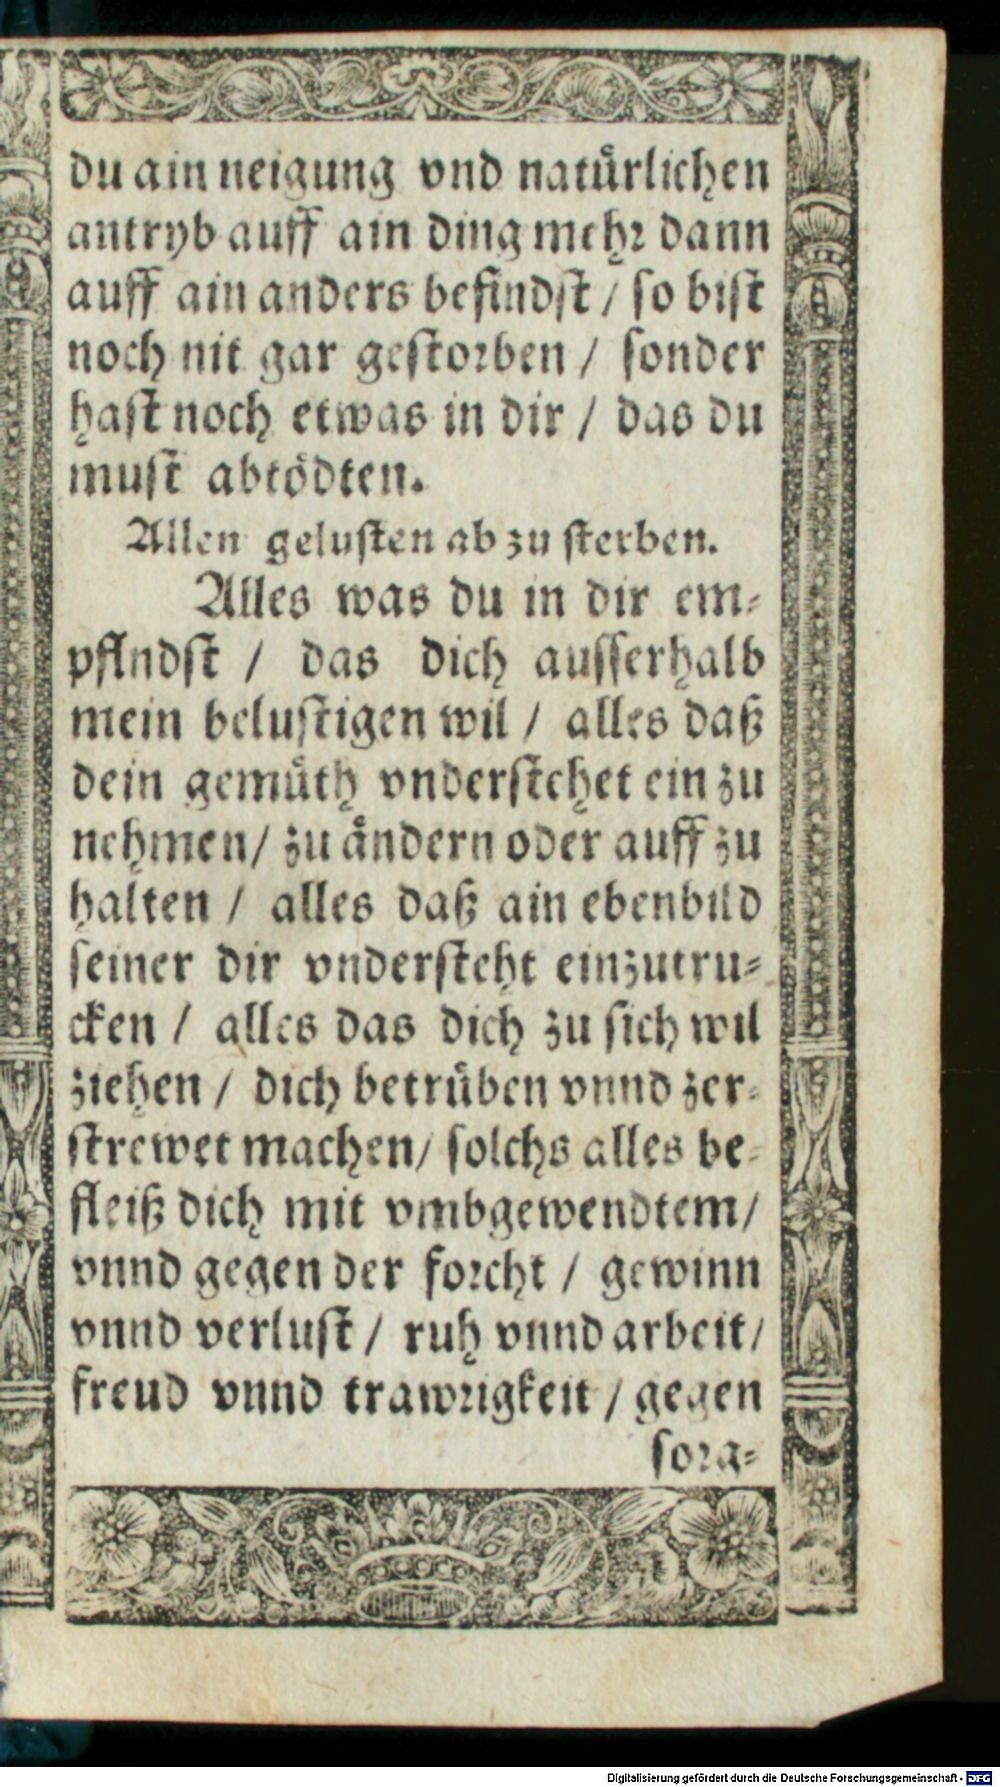 du ain neigung vnd natürlichen
antryb auff ain ding mehr dann
auff ain anders befindſt / ſo biſt
noch nit gar geſtorben / ſonder
haſt noch etwas in dir / das du
muſt abtödten.
Allen geluſten ab zu ſterben.
Alles was du in dir em⸗
pfindſt / das dich auſſerhalb
mein beluſtigen wil / alles daß
dein gemüth vnderſtehet ein zu
nehmen / zu ändern oder auff zu
halten / alles daß ain ebenbild
ſeiner dir vnderſteht einzutru⸗
cken / alles das dich zu ſich wil
ziehen / dich betrüben vnnd zer⸗
ſtrewet machen / ſolchs alles be⸗
fleiß dich mit vmbgewendtem /
vnnd gegen der forcht / gewinn
vnnd verluſt / ruh vnnd arbeit /
freud vnnd trawrigkeit / gegen
ſorg⸗
Digitalisierung gefördert durch die Deutsche Forschungsgemeinschaft - DFG